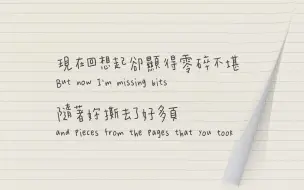 現在回想起卻顯得零碎不堪
But now I'm missing bits
隨著妳撕去了好多頁
and pieces from the pages that you took